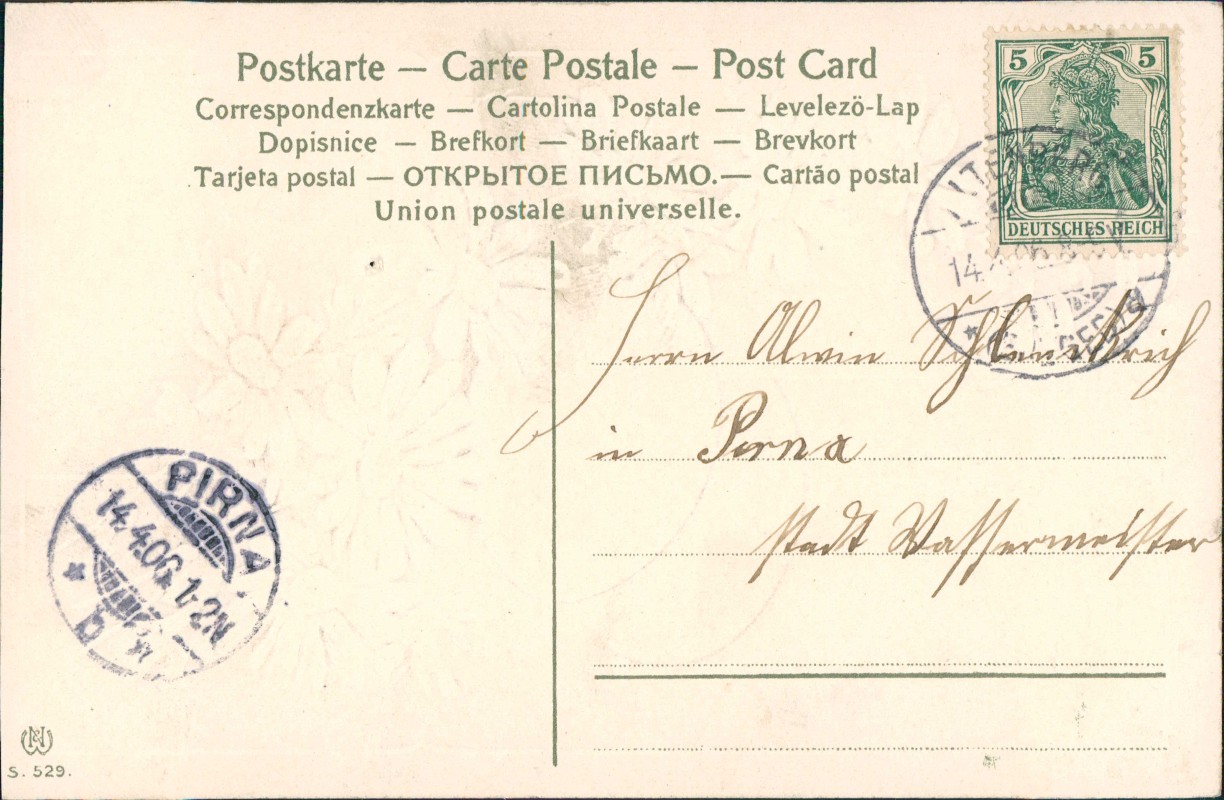 Postkarte — Carte Postale — Post Card
Correspondenzkarte — Cartolina Postale — Levelező-Lap
Dopisnice — Brefkort — Briefkaart — Brevkort
Tarjeta postal — ОТКРЫТОЕ ПИСЬМО. — Cartão postal
Union postale universelle.
5 5
DEUTSCHES REICH
14.4.06. 8
Herrn Alwin
in Pirna
Stadt Wassermeister
PIRNA
14.4.06. 1-2N
b
S. 529.